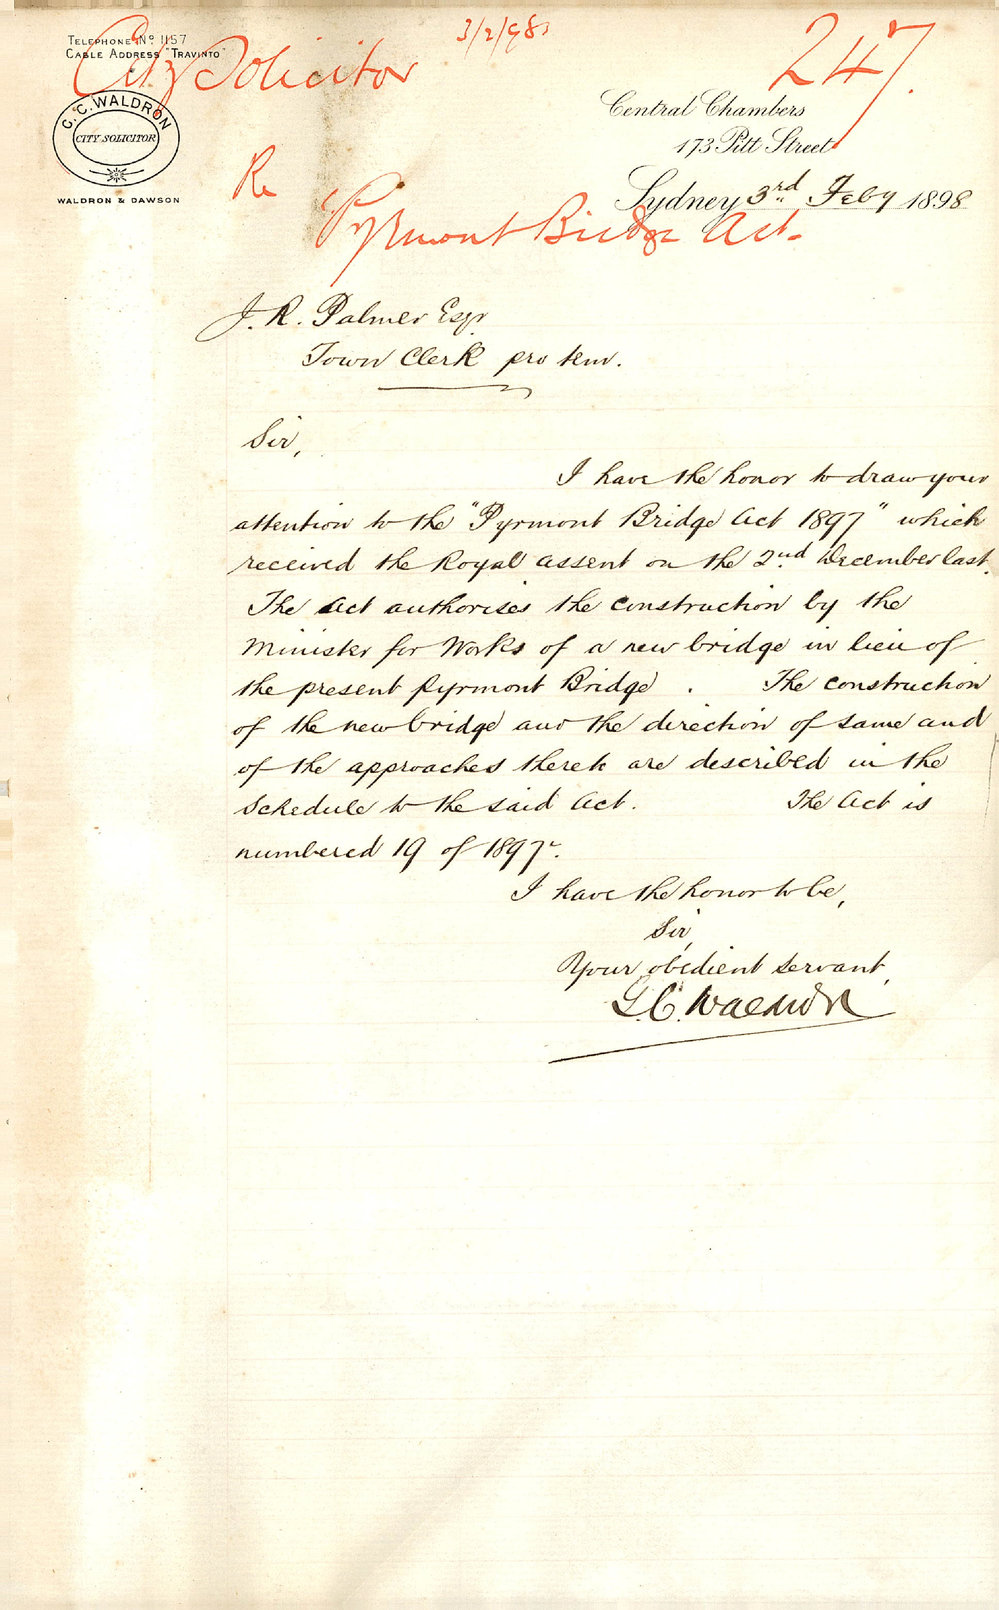 3/2/98
City Solicitor
247.
TELEPHONE Nº 1157
CABLE ADDRESS "TRAVINTO"
G. C. WALDRON
CITY SOLICITOR
WALDRON & DAWSON
Central Chambers
173 Pitt Street
Sydney 3rd Feby 1898
Re
Pyrmont Bridge Act.
J. R. Palmer Esqr
Town Clerk pro tem.
Sir,
I have the honor to draw your
attention to the "Pyrmont Bridge Act 1897" which
received the Royal assent on the 2nd December last.
The Act authorises the construction by the
Minister for Works of a new bridge in lieu of
the present Pyrmont Bridge . The construction
of the new bridge and the direction of same and
of the approaches thereto are described in the
Schedule to the said Act. The Act is
numbered 19 of 1897.
I have the honor to be,
Sir,
Your obedient servant,
G. C. Waldron